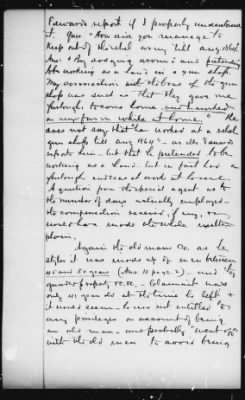 Edwards report if I properly understand
it. Ques "How did you manage to
keep out of the rebel army till aug 1864?
Ans "By dodging around and pretending
to be working as a hand in a gun shop.
My connection with the boss of the gun
shop was such as that they gave me
furlough to come home and I worked
my farm while at home." He
does not say that he worked at a rebel
gun shop till aug 1864" - as Mr Edwards
reports him - but that he pretended to be
working as a hand but in fact had a
furlough and was at work at home.
A question from the special agent as to
the number of days actually employed -
the compensation received, if any, or
would have made the whole matter
plain.
Again the old mans Co. as he
styles it was made up of men between
45 and 50 years (Ans 18 page 2) - and the
Claimant was
only 41 years old at the time he left &
it would seem - he was not entitled to
any privileges on account of being
an old man - and probably "went off"
with the old men to avoid being